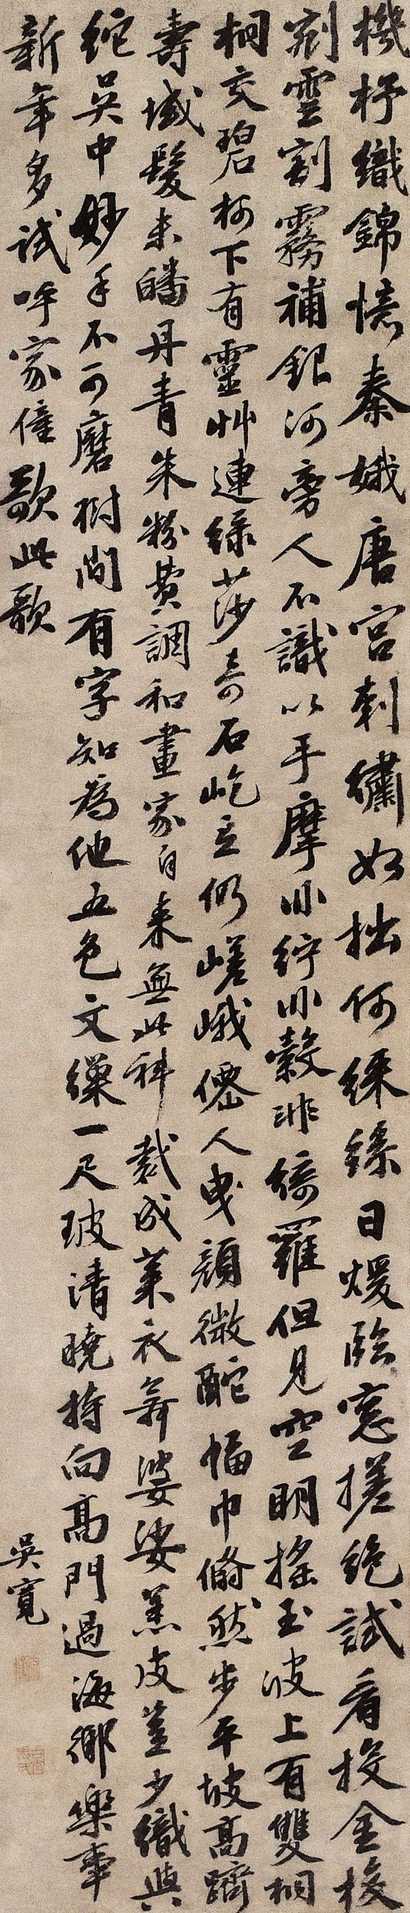 機杼織錦憶秦娥唐宮刺繡如拙何綵絲日煖臨窓搓絕試看投金梭
剡雲割霧補銀河旁人不識以手摩非紵非縠非綺羅但見空明搖玉波上有雙桐
桐交碧柯下有靈艸連綠莎奇石屹立仍嵯峨僊人曳顏微酡幅巾翛然步平坡高躋
壽域髮未皤丹青朱粉費調和畫家自來無此科裁成萊衣舞婆娑羔皮蓋少織與
紽吳中妙手不可磨樹間有字知為他五色文繅一尺玻清曉持向高門過海鄉樂事
新年多試呼家僮歌此歌
吳寬